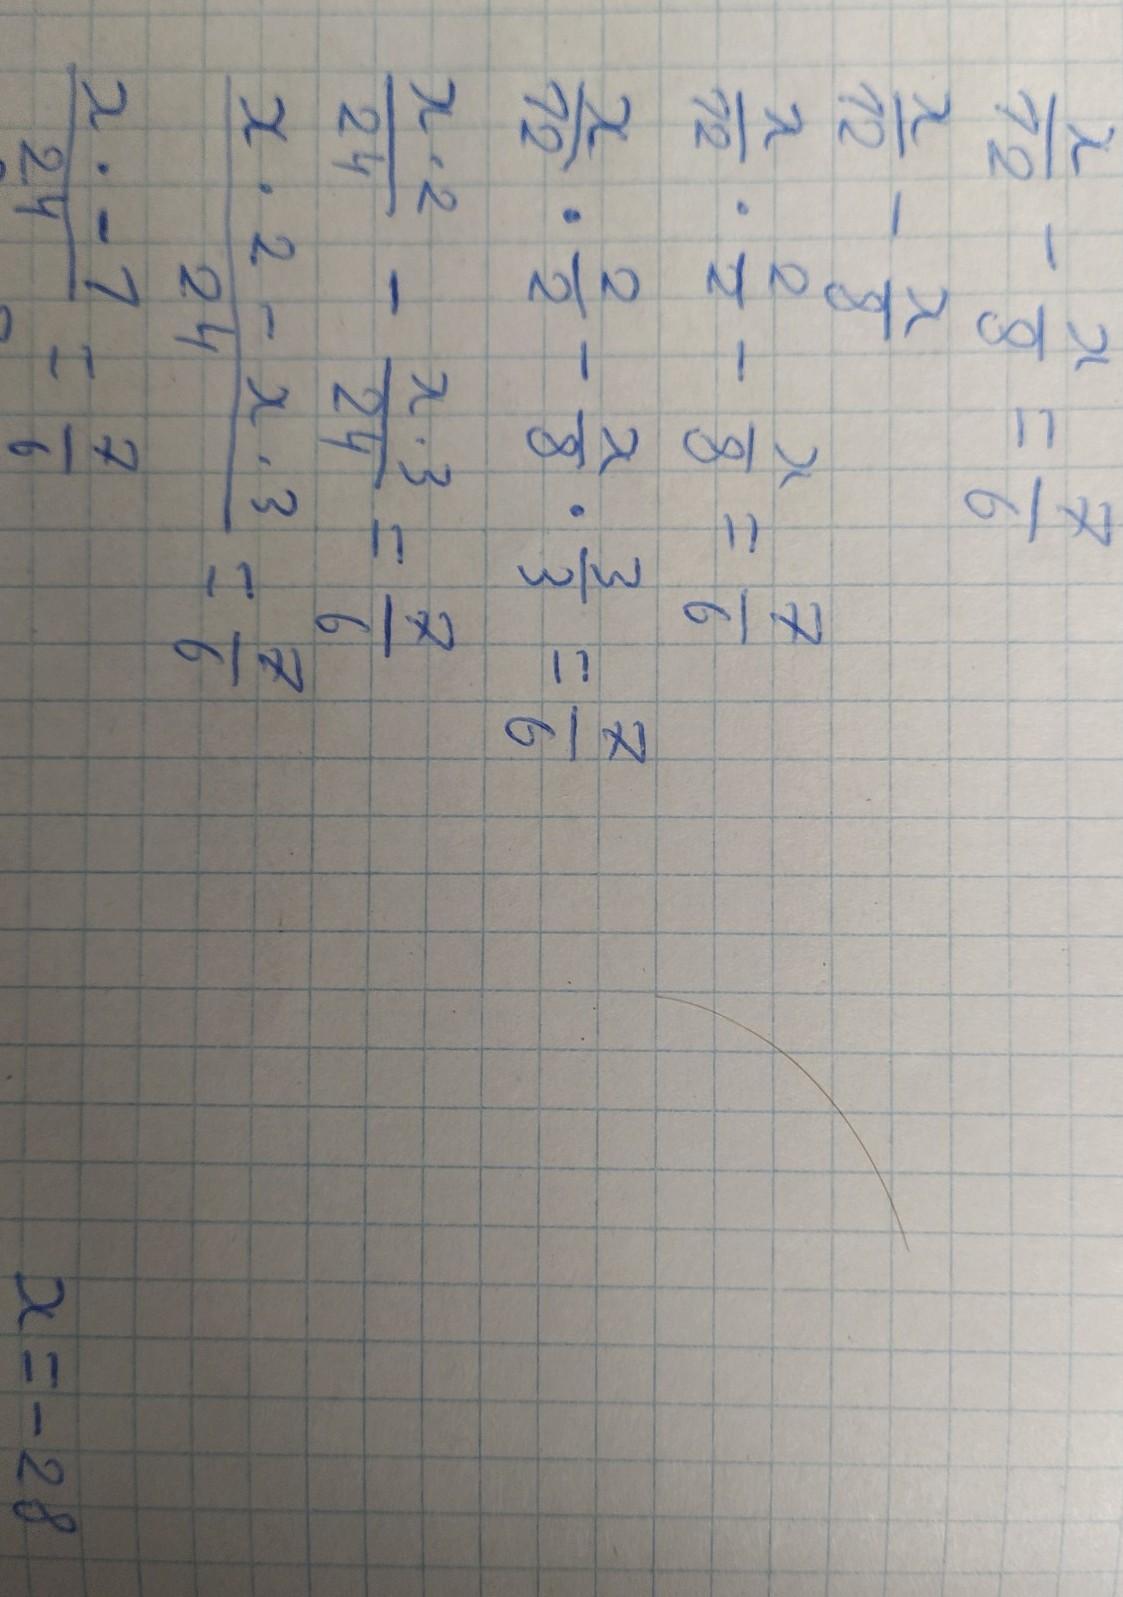 x/12 - x/8 = 7/6
x/12 - x/8
x/12 · 2/2 - x/8 = 7/6
x/12 · 2/2 - x/8 · 3/3 = 7/6
x·2/24 - x·3/24 = 7/6
x·2 - x·3/24 = 7/6
x·-1/24 = 7/6
x = -28